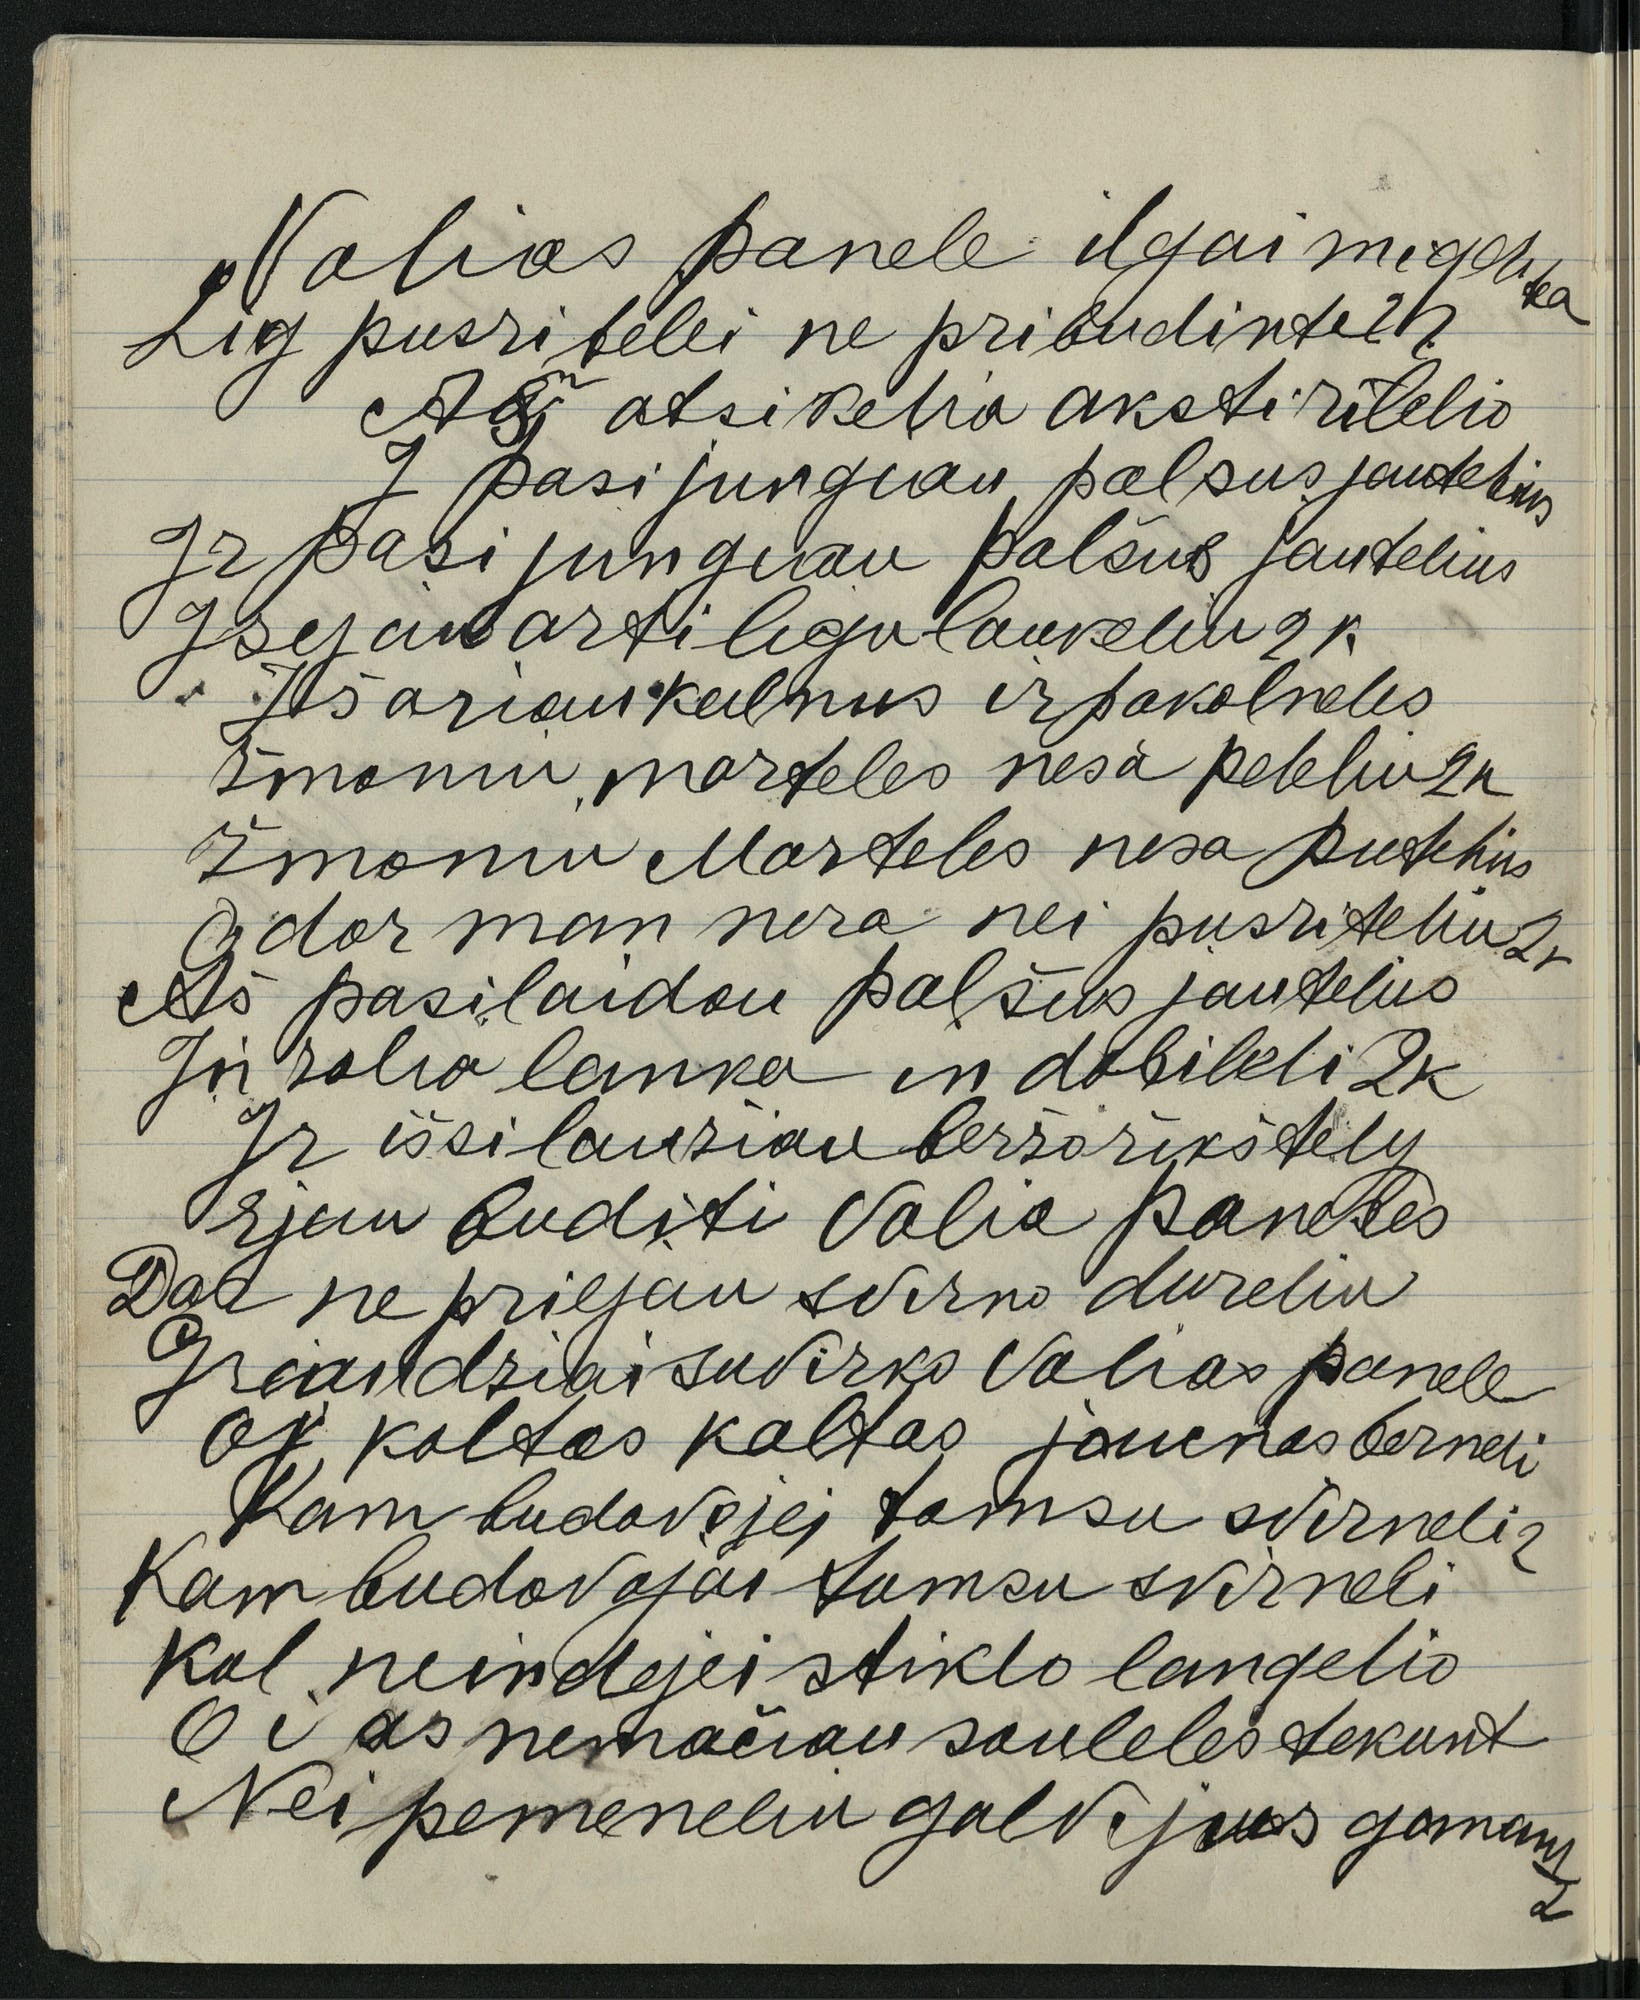 Valios panele ilgai megota
Lig pusritelei ne pribudinte 2k
Aš atsikelio akstiritelio
I pasijungiau palsus jautelius
Ir pasijungiau palšus jautelius
Isejau arti ligu laukeliu 2k
Išariau kalnus ir pakalneles
žmoniu marteles nesa peteliu 2k
žmoniu Marteles nesa putelius
O dar man nera nei pusriteliu 2k
Aš pasilaidau palšus jautelius
In zalia lanka in dobileli 2k
Ir issilaužiau beržo rikštely
ejau buditi Valia paneles
Dar ne priejau svirno dureliu
Graudziai suvirko Valios panele
Oj kaltas kaltas jaunas berneli
Kam budavojej tamsu svirneli 2
Kam budavojai tamsu svirneli
Kal neindejei stiklo langelio
Oi as nemačiau sauleles tekant
Nei pemeneliu galvijus ganant
2